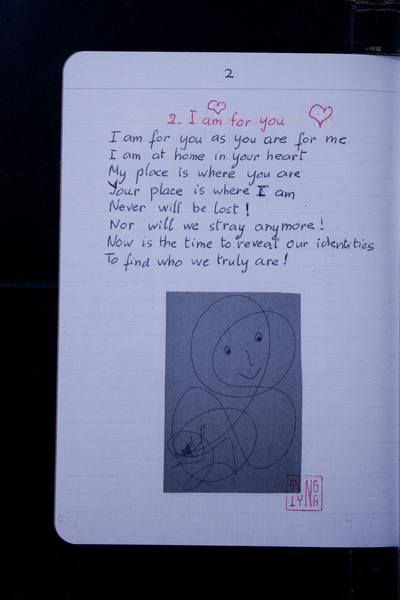 2
2. I am for you
I am for you as you are for me
I am at home in your heart
My place is where you are
Your place is where I am
Never will be lost!
Nor will we stray anymore!
Now is the time to reveal our identities
To find who we truly are!